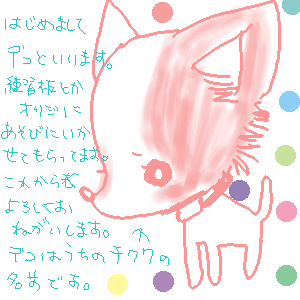 はじめまして
デコといいます。
練習板とか
オリジに
あそびにいか
せてもらってます。
これからも
よろしくお
ねがいします。
デコはうちのチワワの
名前です。